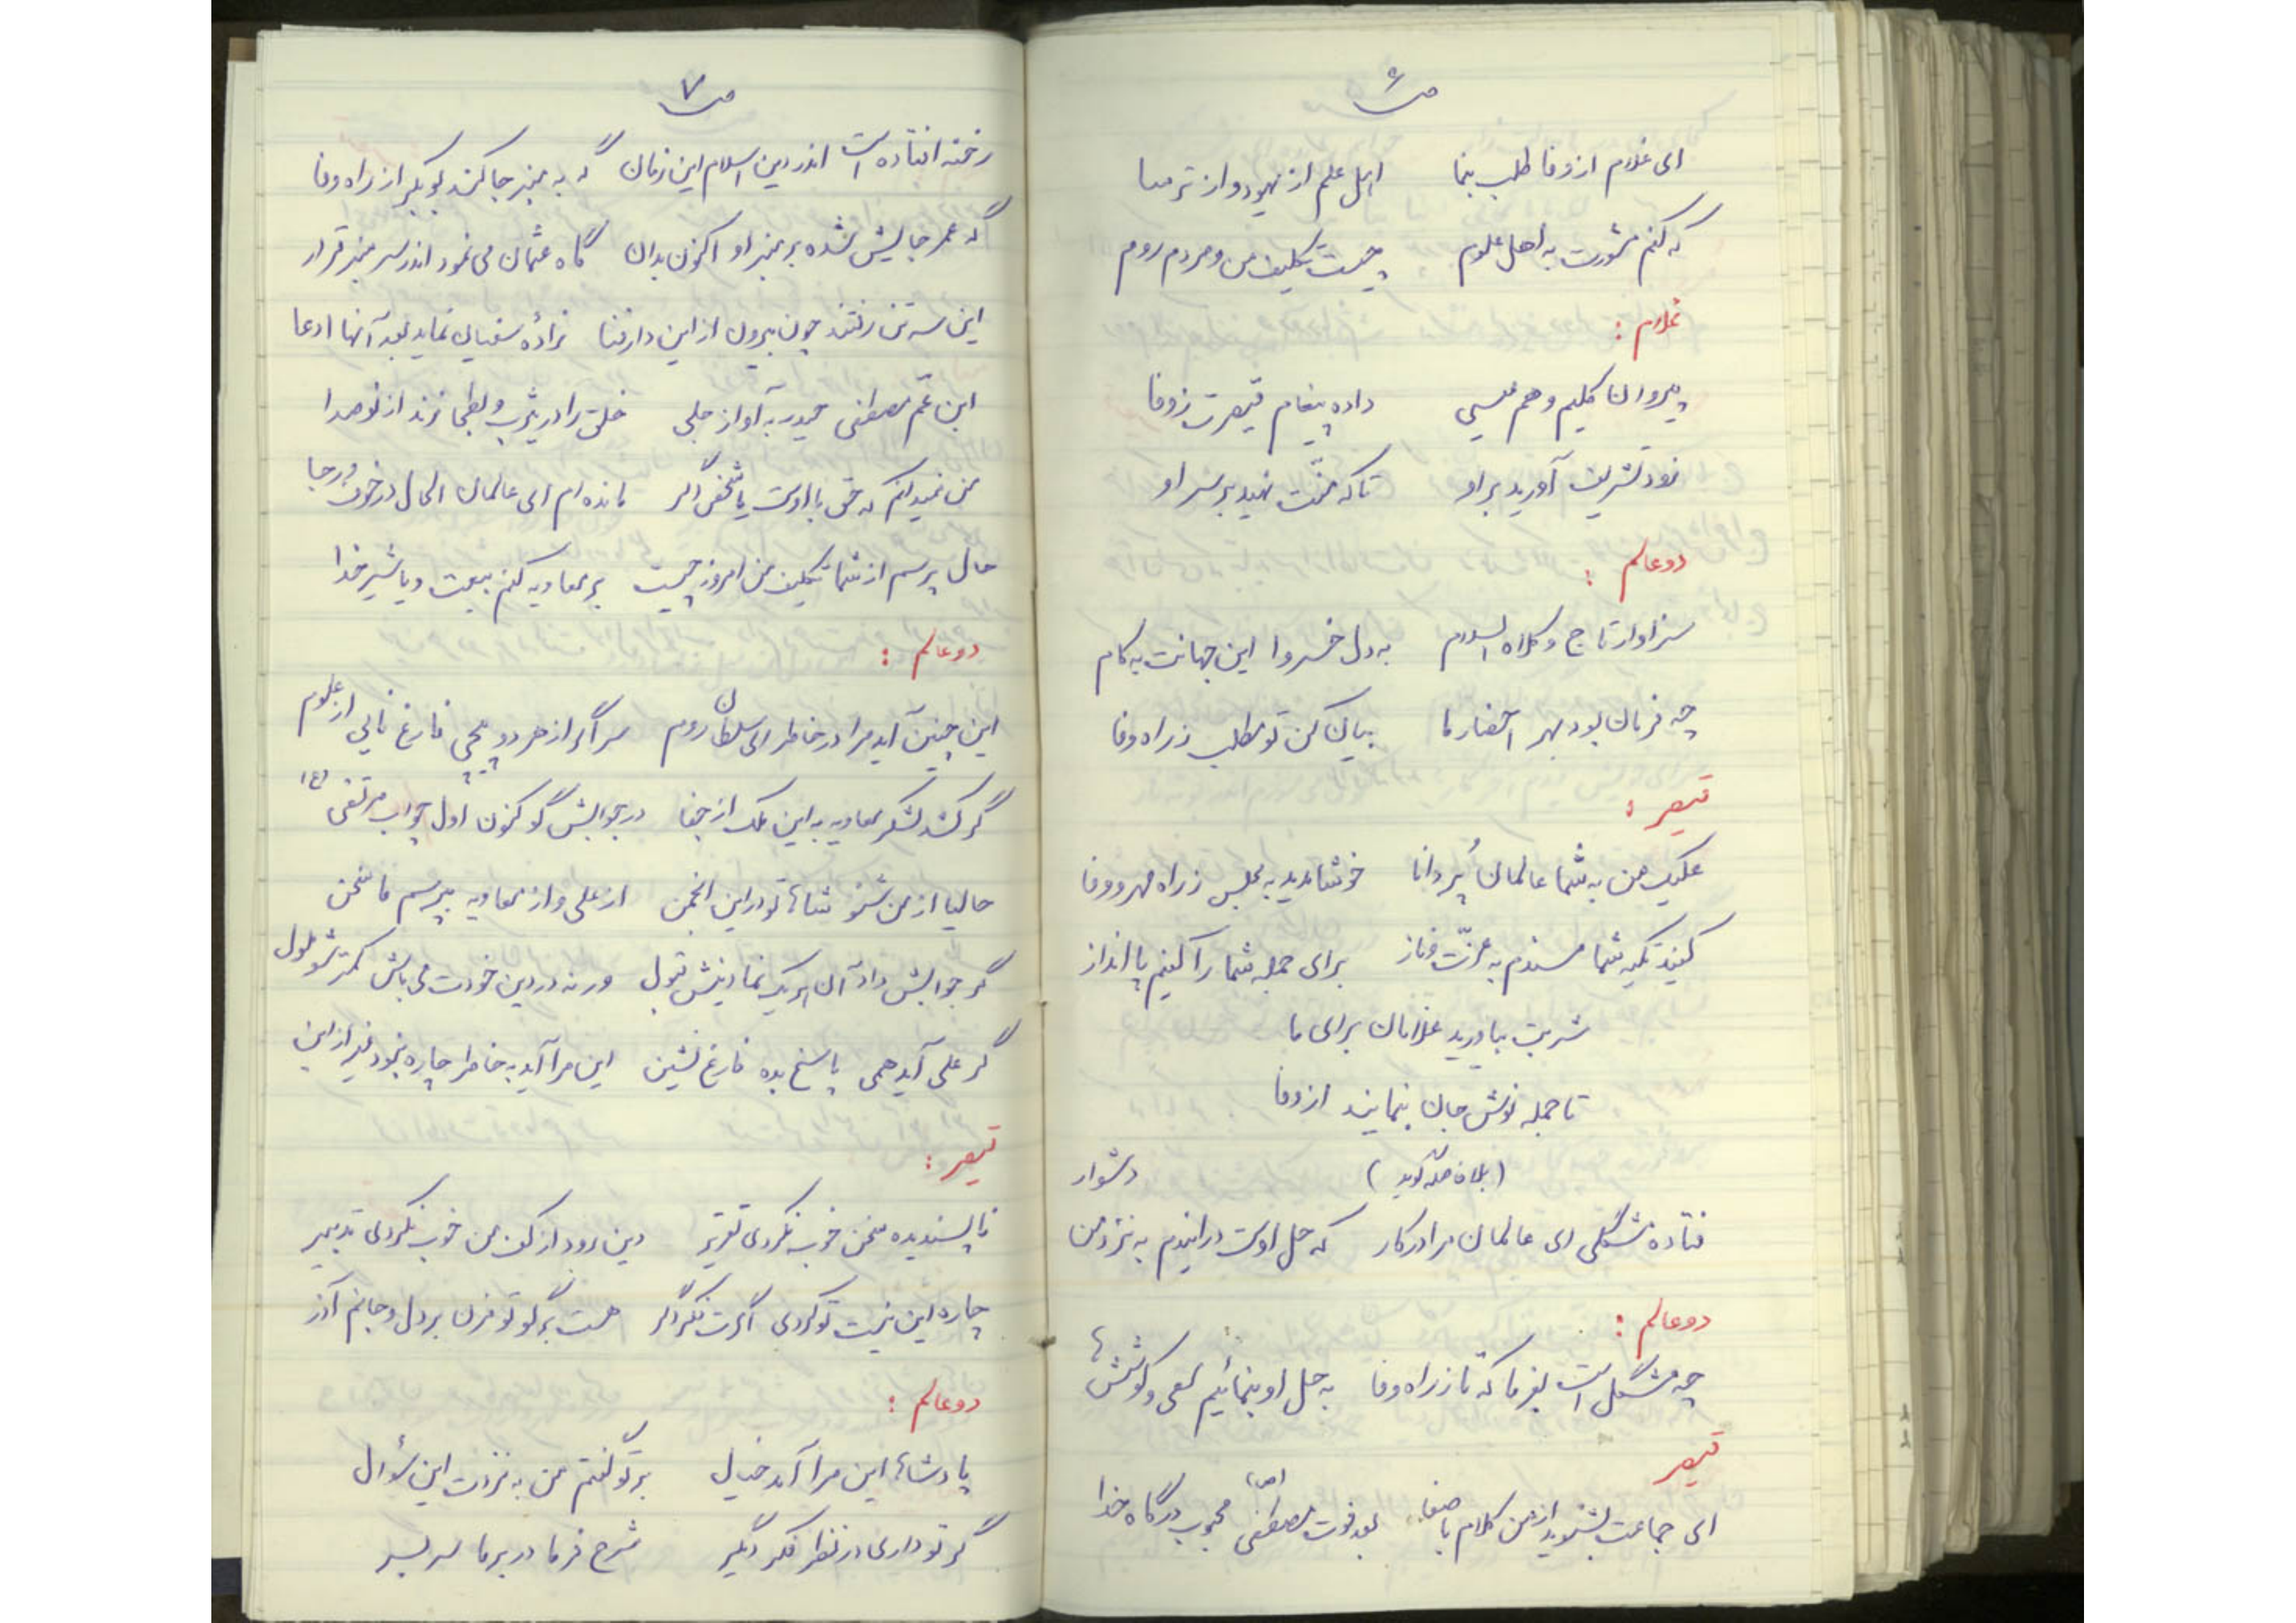 ص ۶
ای غلام از وفا طلب بنما اهل علم از یهود و از ترسا
که کنم مشورت به اهل علوم چیست تکلیف من و مردم روم
غلام :
پیروان کلیم و هم عیسی داده پیغام قیصرت ز وفا
زود تشریف آورید بر او تا که منّت نهید بر سر او
دو عالم :
سزاوار تاج و کلاه السلام به دل خسروا این جهانت به کام
چه فرمان بود بهر احضار ما بیان کن تو مطلب ز راه وفا
قیصر :
علیک من به شما عالمان پُر دانا خوش آمدید به مجلس ز راه مهر و وفا
کنید تکیه شما مسندم به عزّت و ناز برای جمله شما را کنیم پا انداز
شربت بیاورید غلامان برای ما
تا جمله نوش جان بنمایند از وفا
(بلافاصله گوید) دشوار
فتاده مشگلی ای عالمان مرا در کار که حل اوست در این دم به نزد من
دو عالم :
چه مشگل است بفرما که تا ز راه وفا به حل او بنمائیم سعی و کوشش ها
قیصر
ای جماعت بشنوید از من کلام با صفا بعد فوت مصطفی (ص) محبوب درگاه خدا
ص ۷
رخنه افتاده است اندر دین اسلام این زمان گه به منبر جا کند بوبکر از راه وفا
گه عمر جالیش شده بر منبر او اکنون بدان گاه عثمان می نمود اندر سر منبر قرار
این سه تن رفتند چون بیرون از این دار فنا زادۀ سفیان نماید بعد آنها ادعا
ابن عمّ مصطفی حیدر به آواز جلی خلق را در یثرب و بطحا زند از نو صدا
من نمیدانم که حق با اوست یا شخص دگر مانده ام ای عالمان الحال در خوف و رجا
حال پرسم از شما تکلیف من امروز چیست بر معاویه کنم بیعت و یا شیر خدا
دو عالم :
این چنین آید مرا در خاطر ای سلطان روم سر اگر از هر دو پیچی فارغ نائی از علوم
گر کشد لشکر معاویه به این ملک از جفا در جوابش گو کنون اول جواب مرتضی (ع)
حالیا از من شنو شاها تو در این انجمن از علی و از معاویه بپرسم ما سخن
گر جوابش داد آن هر یک نما دینش قبول ور نه در دین خودت می باش کمتر شو ملول
گر علی آید همی پاسخ بده فارغ نشین این مرا آید به خاطر چاره نبود غیر از این
قیصر :
ناپسندیده سخن خوب نکردی تقریر دین رود از کف من خوب نکردی تدبیر
چاره این نیست تو کردی اگرت فکر دگر هست برگو تو مزن بر دل و جانم آذر
دو عالم :
پادشاها این مرا آمد خیال بر تو گفتم من به نزدت این سؤال
گر تو داری در نظر فکر دگر شرح فرما در بر ما سر بسر